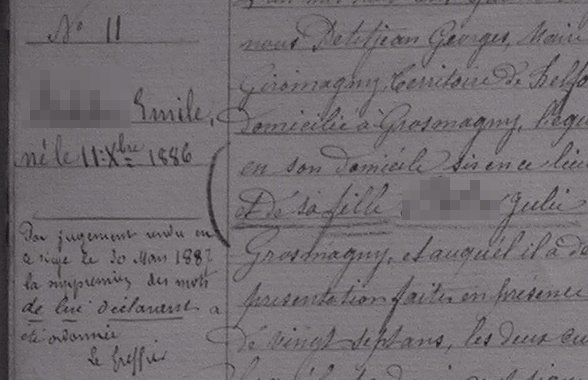 N° 11
Emile,
né le 11 Xbre 1886
Par jugement rendu en
ce siège le 30 Mars 1887
la suppression des mots
de lui déclarant a
été ordonnée
Le Greffier
nous Petitjean Georges, Maire
Giromagny, Territoire de Belfo
domicilié à Grosmagny, lequ
en son domicile sis en ce lieu
et de sa fille Julie
Grosmagny, et auquel il a dé
présentation faites en présence
de vingt sept ans, les deux cu